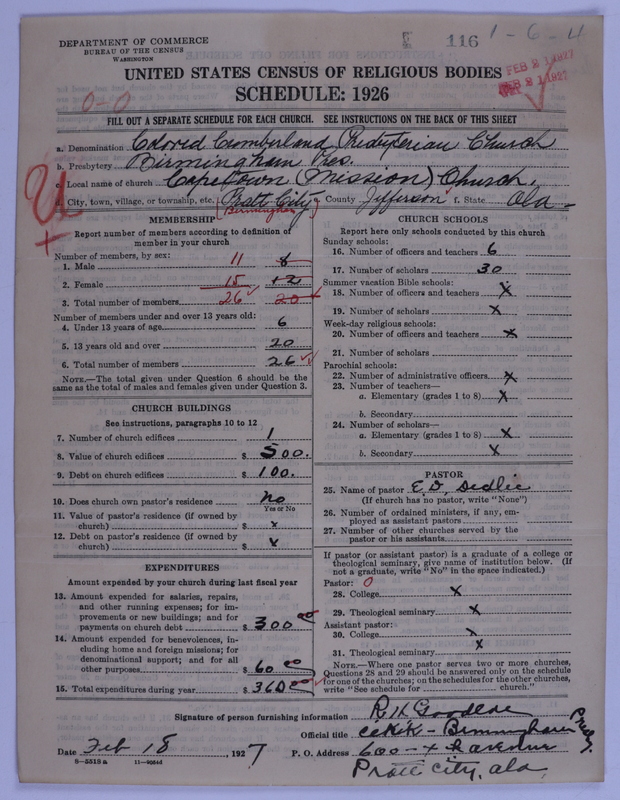 DEPARTMENT OF COMMERCE
BUREAU OF THE CENSUS
WASHINGTON
116
1-6-4
FEB 21 1927
FEB 21 1927
UNITED STATES CENSUS OF RELIGIOUS BODIES
SCHEDULE: 1926
0-0
FILL OUT A SEPARATE SCHEDULE FOR EACH CHURCH. SEE INSTRUCTIONS ON THE BACK OF THIS SHEET
a. Denomination Colored Cumberland Presbyterian Church
b. Presbytery Birmingham Pres.
c. Local name of church Capetown (Mission) Church.
d. City, town, village, or township, etc. Pratt City e. County Jefferson f. State Ala
(Birmingham)
MEMBERSHIP
Report number of members according to definition of
member in your church
Number of members, by sex:
1. Male 11 8
2. Female 15 12
3. Total number of members 26 20
Number of members under and over 13 years old:
4. Under 13 years of age 6
5. 13 years old and over 20
6. Total number of members 26
NOTE.—The total given under Question 6 should be the
same as the total of males and females given under Question 3.
CHURCH BUILDINGS
See instructions, paragraphs 10 to 12
7. Number of church edifices 1
8. Value of church edifices $ 500.
9. Debt on church edifices $ 100.
10. Does church own pastor's residence No
Yes or No
11. Value of pastor's residence (if owned by
church) $ x
12. Debt on pastor's residence (if owned by
church) $ x
EXPENDITURES
Amount expended by your church during last fiscal year
13. Amount expended for salaries, repairs,
and other running expenses; for im-
provements or new buildings; and for
payments on church debt $ 300 00
14. Amount expended for benevolences, in-
cluding home and foreign missions; for
denominational support; and for all
other purposes $ 60 00
15. Total expenditures during year $ 360 00
CHURCH SCHOOLS
Report here only schools conducted by this church
Sunday schools:
16. Number of officers and teachers 6
17. Number of scholars 30
Summer vacation Bible schools:
18. Number of officers and teachers x
19. Number of scholars x
Week-day religious schools:
20. Number of officers and teachers x
21. Number of scholars
Parochial schools:
22. Number of administrative officers x
23. Number of teachers—
a. Elementary (grades 1 to 8) x
b. Secondary
24. Number of scholars—
a. Elementary (grades 1 to 8) x
b. Secondary x
PASTOR
25. Name of pastor E.D.
(If church has no pastor, write "None")
26. Number of ordained ministers, if any, em-
ployed as assistant pastors
27. Number of other churches served by the
pastor or his assistants
If pastor (or assistant pastor) is a graduate of a college or
theological seminary, give name of institution below. (If
not a graduate, write "No" in the space indicated.)
Pastor: 0
28. College x
29. Theological seminary x
Assistant pastor:
30. College x
31. Theological seminary x
NOTE.—Where one pastor serves two or more churches,
Questions 28 and 29 should be answered only on the schedule
for one of the churches; on the schedules for the other churches,
write "See schedule for church."
Signature of person furnishing information R H
Official title Birmingham Presby
Date Feb 18 1927 P. O. Address 600
Pratt City, Ala
8-5518a 11-9064d